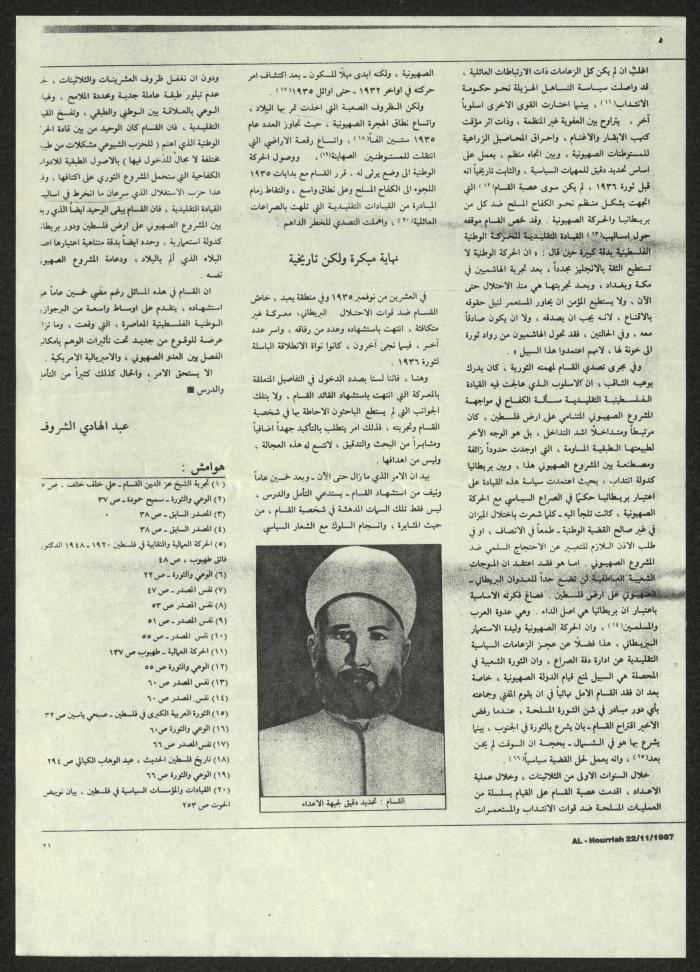 اغلبُ ان لم يكن كل الزعامات ذات الارتباطات العائلية ،
قد واصلت سياسة التساهل الهزيلة نحو حكومة
الانتداب(١١) ، بينما اختارت القوى الاخرى اسلوباً
آخر . يتراوح بين العفوية غير المنظمة ، وذات اثر مؤقت
كنهب الابقار والاغنام ، واحراق المحاصيل الزراعية
للمستوطنات الصهيونية ، وبين اتجاه منظم ، يعمل على
اساس تحديد دقيق للمهمات السياسية ، والثابت تاريخياً انه
قبل ثورة ١٩٣٦ ، لم يكن سوى عصبة القسام(١٢) التي
اتجهت بشكل منظم نحو الكفاح المسلح ضد كل من
بريطانيا والحركة الصهيونية . وقد لخص القسام موقفه
حول اساليب(١٣) القيادة التقليدية للحركة الوطنية
الفلسطينية بدقة كبيرة حين قال : « ان الحركة الوطنية لا
تستطيع الثقة بالانجليز مجدداً ، بعد تجربة الهاشميين في
مكة وبغداد ، وبعد تجربتها هي منذ الاحتلال حتى
الآن ، ولا يستطيع المؤمن ان يحاور المستعمر لنيل حقوقه
بالاقناع ، لانه يجب ان يصدقه ، ولا ان يكون صادقاً
معه ، وفي الحالتين ، فقد تحول الهاشميون من رواد ثورة
الى خونة لها ، لانهم اعتمدوا هذا السبيل » .
وفي مجرى تصدي القسام لمهمته الثورية ، كان يدرك
بوعيه الثاقب ، ان الاسلوب الذي عالجت فيه القيادة
الفلسطينية التقليدية مسألة الكفاح في مواجهة
المشروع الصهيوني المتنامي على ارض فلسطين ، كان
مرتبطاً ومتداخلاً اشد التداخل ، بل هو الوجه الآخر
لطبيعتها الطبقية المساومة ، التي اوجدت حدوداً زائفة
ومصطنعة بين المشروع الصهيوني هذا ، وبين بريطانيا
كدولة انتداب ، بحيث اعتمدت سياسة هذه القيادة على
اعتبار بريطانيا حكماً في الصراع السياسي مع الحركة
الصهيونية ، كانت تلجأ اليه ـ كلما شعرت باختلال الميزان
في غير صالح القضية الوطنية ـ طمعاً في الانصاف ، او في
طلب الاذن اللازم للتعبير عن الاحتجاج السلمي ضد
المشروع الصهيوني . اما هو فقد اعتقد ان الموجات
الشعبية العاطفية لن تضع حداً للعدوان البريطاني ـ
الصهيوني على ارض فلسطين . فصاغ فكرته الاساسية
باعتبار ان بريطانيا هي اصل الداء . وهي عدوة العرب
والمسلمين(١٤) ، وان الحركة الصهيونية وليدة الاستعمار
البريطاني ، هذا فضلاً عن عجز الزعامات السياسية
التقليدية عن ادارة دفة الصراع ، وان الثورة الشعبية في
المحصلة هي السبيل لمنع قيام الدولة الصهيونية ، خاصة
بعد ان فقد القسام الامل نهائياً في ان يقوم المفتي وجماعته
بأي دور مبادر في شن الثورة المسلحة ، عندما رفض
الاخير اقتراح القسام ـ بأن يشرع بالثورة في الجنوب ، بينما
يشرع بها هو في الشمال ـ بحجة ان الوقت لم يحن
بعد(١٥) ، وانه يعمل لحل القضية سياسياً(١٦) .
خلال السنوات الاولى من الثلاثينات ، وخلال عملية
الاعداد ، اقدمت عصبة القسام على القيام بسلسلة من
العمليات المسلحة ضد قوات الانتداب والمستعمرات
الصهيونية ، ولكنه ابدى ميلاً للسكون ـ بعد اكتشاف امر
حركته في اواخر ١٩٣٢ ـ حتى اوائل ١٩٣٥(١٧) .
ولكن الظروف الصعبة التي اخذت تمر بها البلاد ،
واتساع نطاق الهجرة الصهيونية ، حيث تجاوز العدد عام
١٩٣٥ ستين الفاً(١٨) ، واتساع رقعة الاراضي التي
انتقلت للمستوطنين الصهاينة(١٩) ، ووصول الحركة
الوطنية الى وضع يرثى له ، قرر القسام مع بدايات ١٩٣٥
اللجوء الى الكفاح المسلح وعلى نطاق واسع ، والتقاط زمام
المبادرة من القيادات التقليدية التي تلهت بالصراعات
العائلية(٢٠) ، واهملت التصدي للخطر الداهم .
نهاية مبكرة ولكن تاريخية
في العشرين من نوفمبر ١٩٣٥ وفي منطقة يعبد ، خاض
القسام ضد قوات الاحتلال البريطاني، معركة غير
متكافئة ، انتهت باستشهاده وعدد من رفاقه ، واسر عدد
آخر ، فيما نجى آخرون ، كانوا نواة الانطلاقة الباسلة
لثورة ١٩٣٦ .
وهنا ، فاننا لسنا بصدد الدخول في التفاصيل المتعلقة
بالمعركة التي انتهت باستشهاد القائد القسام ، ولا بتلك
الجوانب التي لم يستطع الباحثون الاحاطة بها في شخصية
القسام وتجربته ، فذلك امر يتطلب بالتأكيد جهداً اضافياً
ومثابراً من البحث والتدقيق ، لا تتسع له هذه العجالة ،
وليس من اهدافها .
بيد ان الامر الذي ما زال حتى الآن ـ وبعد خمسين عاماً
ونيف من استشهاد القسام ـ يستدعي التأمل والدرس ،
ليس فقط تلك السمات المدهشة في شخصية القسام ، من
حيث المثابرة ، وانسجام السلوك مع الشعار السياسي
القسام : تحديد دقيق لجبهة الاعداء
ودون ان نغفل ظروف العشرينات والثلاثينات ،
عدم تبلور طبقة عاملة جدية ومحددة الملامح ،
الوعي بالعلاقة بين الوطني والطبقي ، وتفسخ
التقليدية ، فان القسام كان الوحيد من بين قادة
الوطنية الذي اهتم ( للحزب الشيوعي مشكلات من
مختلفة لا مجال للدخول فيها ) بالاصول الطبقية
الكفاحية التي ستحمل المشروع الثوري على اكتافها ،
عدا حزب الاستقلال الذي سرعان ما انخرط في
القيادة التقليدية ، فان القسام يبقى الوحيد ايضاً الذي
بين المشروع الصهيوني على ارض فلسطين ودور
كدولة استعمارية ، وحدد ايضاً بدقة متناهية اعتبارها
البلاء الذي ألم بالبلاد ، ودعامة المشروع
نفسه .
ان القسام في هذه المسائل رغم مضي خمسين عاماً
استشهاده ، يتقدم على اوساط واسعة من
الوطنية الفلسطينية المعاصرة ، التي وقعت ، وما
عرضة للوقوع من جديد تحت تأثيرات الوهم
الفصل بين العدو الصهيوني ، والامبريالية الامريكية .
الا يستحق الامر ، والحال كذلك كثيراً من
والدرس ■
عبد الهادي الشروف
هوامش :
(١) تجربة الشيخ عز الدين القسام ـ علي خلف خلف ، ص
(٢) الوعي والثورة ـ سميح حمودة ـ ص ٣٧
(٣) المصدر السابق ـ ص ٣٨
(٤) المصدر السابق ـ ص ٣٨
(٥) الحركة العمالية والنقابية في فلسطين ١٩٢٠ ـ ١٩٤٨ الدكتور
فائق طهبوب ، ص ٤٨
(٦) الوعي والثورة ـ ص ٢٢
(٧) نفس المصدر ـ ص ٤٧
(٨) نفس المصدر ص ٥٣
(٩) نفس المصدر ـ ص ٥١
(١٠) نفس المصدر ـ ص ٥٥
(١١) الحركة العمالية ـ طهبوب ص ١٣٧
(١٢) الوعي والثورة ص ٥٥
(١٣) نفس المصدر ص ٦٠
(١٤) نفس المصدر ص ٦٠
(١٥) الثورة العربية الكبرى في فلسطين ـ صبحي ياسين ص ٣٢
(١٦) الوعي والثورة ص ٦٠
(١٧) نفس المصدر ص ٦٦
(١٨) تاريخ فلسطين الحديث ، عبد الوهاب الكيالي ص ٢٩٤
(١٩) الوعي والثورة ص ٦٦
(٢٠) القيادات والمؤسسات السياسية في فلسطين ، بيان نويهض
الحوت ص ٢٥٣
AL - Hourriah 22/11/1987
٢١